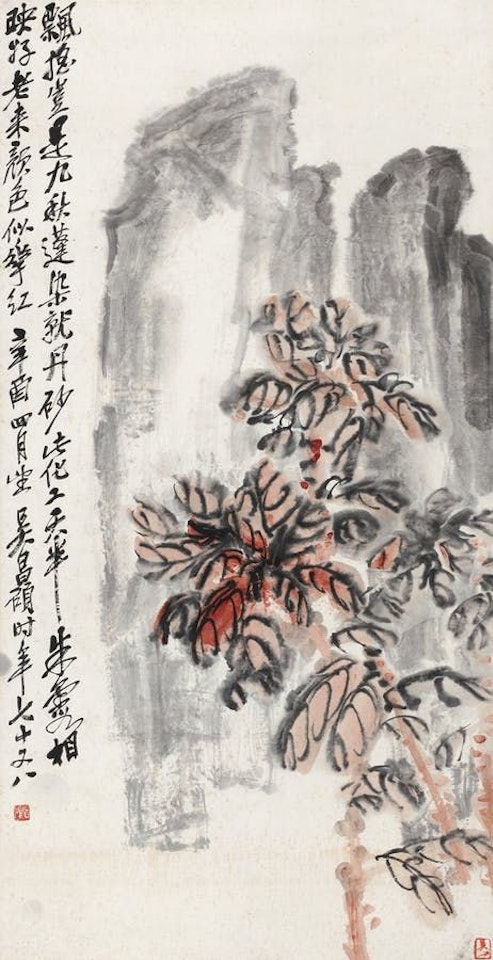 飄搖豈是九秋蓬染就丹砂此化工天半朱霞相
映好老来顏色似華紅 辛酉四月 吳昌碩时年七十又八